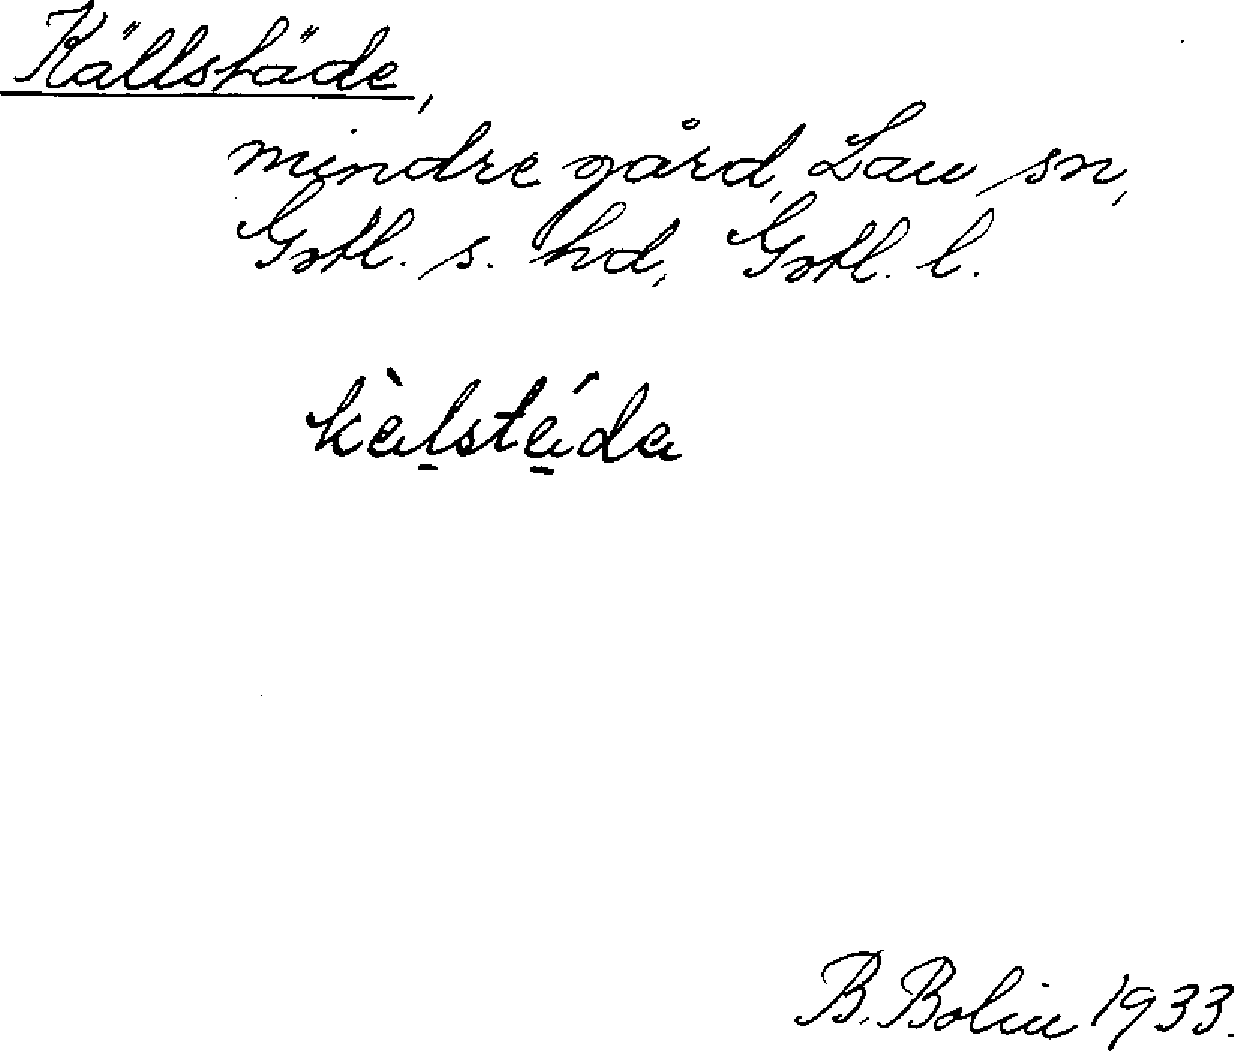 Källstäde,
mindre gård, Lau sn,
Gotl. s. hd, Gotl. l.
kälstäda
B. Bolin 1933.